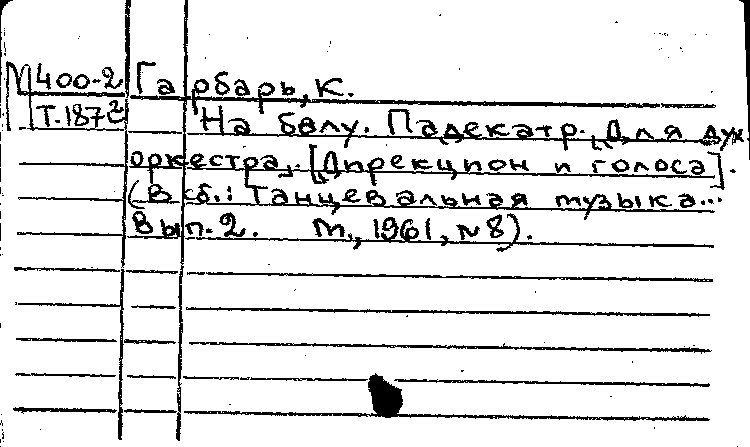 М 400-2 Гарбарь, К.
Т.187² На балу. Падекатр. Для дух.
оркестра. [Дирекцион и голоса].
(В сб.: Танцевальная музыка...
Вып. 2. М., 1961, № 8).